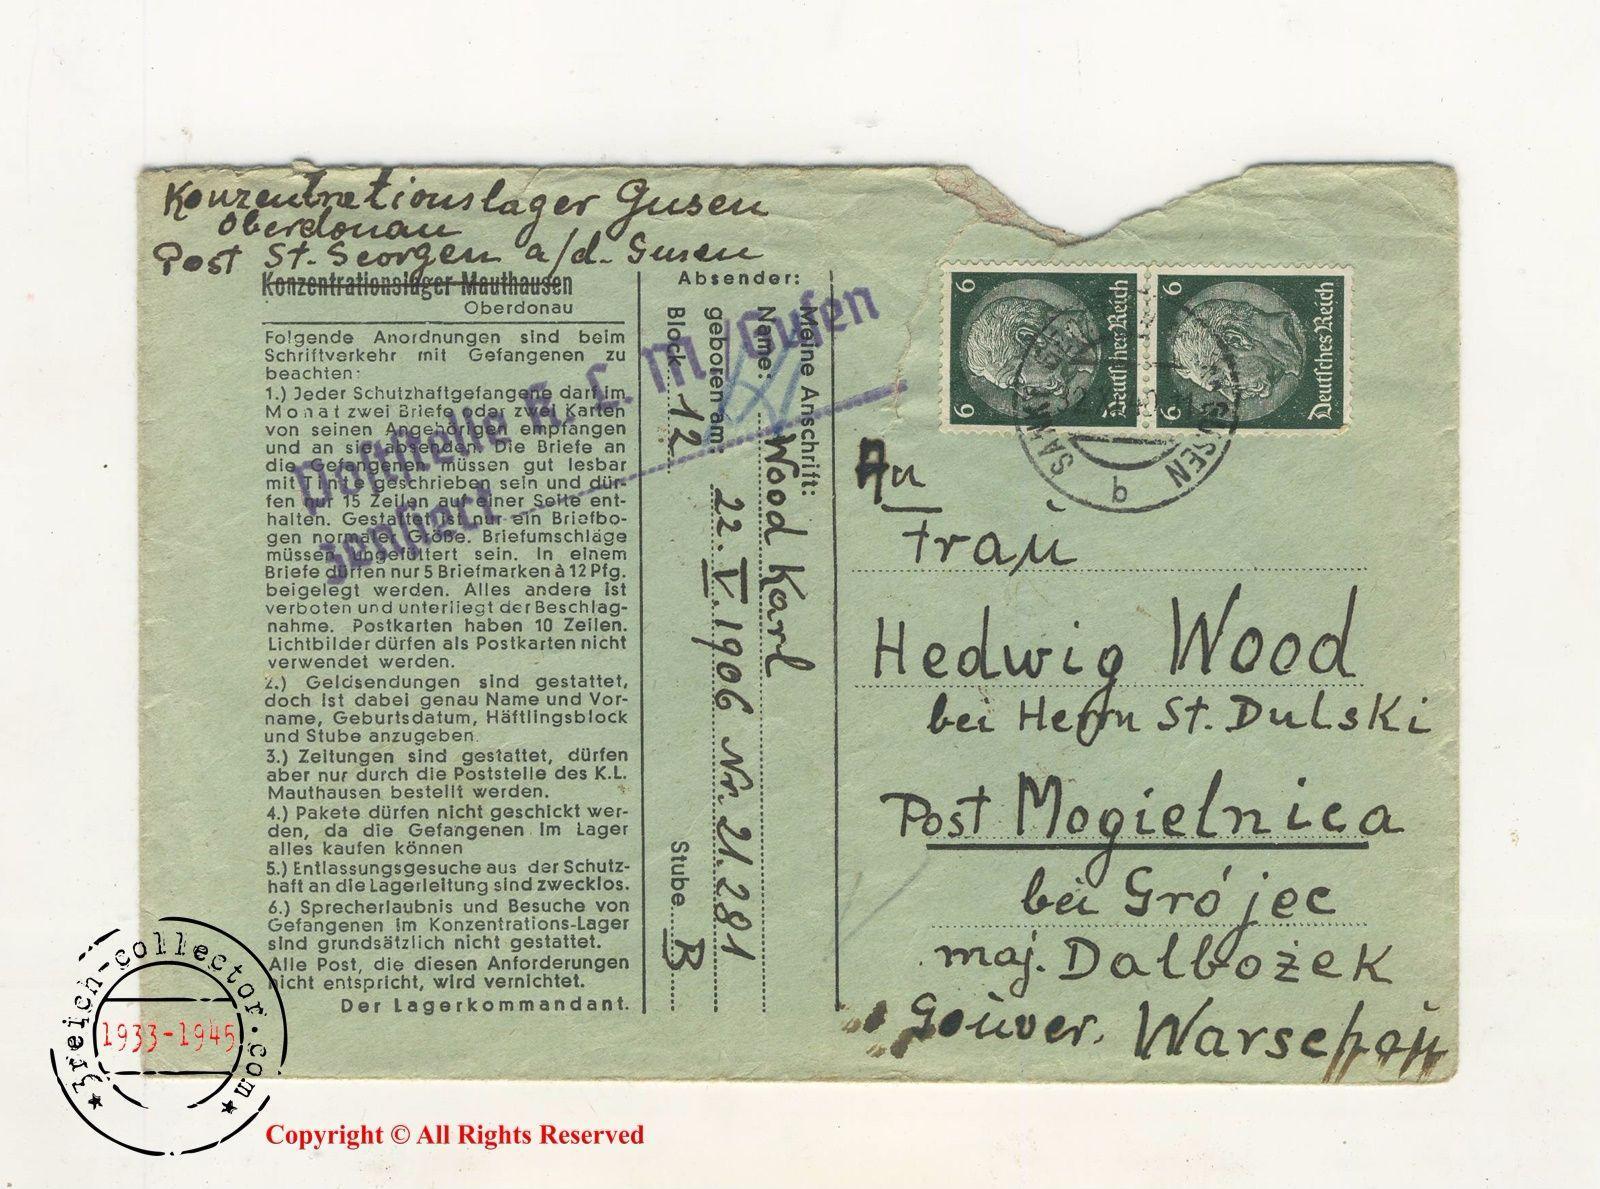 Konzentrationslager Gusen
Oberdonau
Post St. Georgen a/d. Gusen
Konzentrationslager Mauthausen
Oberdonau
Folgende Anordnungen sind beim
Schriftverkehr mit Gefangenen zu
beachten:
1.) Jeder Schutzhaftgefangene darf im
Monat zwei Briefe oder zwei Karten
von seinen Angehörigen empfangen
und an sie absenden. Die Briefe an
die Gefangenen müssen gut lesbar
mit Tinte geschrieben sein und dür-
fen nur 15 Zeilen auf einer Seite ent-
halten. Gestattet ist nur ein Briefbo-
gen normaler Größe. Briefumschläge
müssen ungefüttert sein. In einem
Briefe dürfen nur 5 Briefmarken à 12 Pfg.
beigelegt werden. Alles andere ist
verboten und unterliegt der Beschlag-
nahme. Postkarten haben 10 Zeilen.
Lichtbilder dürfen als Postkarten nicht
verwendet werden.
2.) Geldsendungen sind gestattet,
doch ist dabei genau Name und Vor-
name, Geburtsdatum, Häftlingsblock
und Stube anzugeben.
3.) Zeitungen sind gestattet, dürfen
aber nur durch die Poststelle des K.L.
Mauthausen bestellt werden.
4.) Pakete dürfen nicht geschickt wer-
den, da die Gefangenen im Lager
alles kaufen können
5.) Entlassungsgesuche aus der Schutz-
haft an die Lagerleitung sind zwecklos.
6.) Sprecherlaubnis und Besuche von
Gefangenen im Konzentrations-Lager
sind grundsätzlich nicht gestattet.
Alle Post, die diesen Anforderungen
nicht entspricht, wird vernichtet.
Der Lagerkommandant.
Poststelle K. L. M/Gusen
zensiert
Absender:
Meine Anschrift:
Name: Wood Karl
geboren am: 22. V. 1906 Nr. 21.281
Block 12 Stube B
6 Deutsches Reich 6
6 Deutsches Reich 6
GUSEN
b
An
Frau
Hedwig Wood
bei Herrn St. Dulski
Post Mogielnica
bei Grójec
maj. Dalbożek
Gouver. Warschau
3reich-collector.com
1933-1945
Copyright © All Rights Reserved